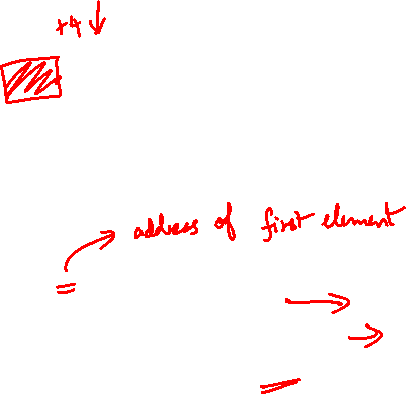 +4
address of first element